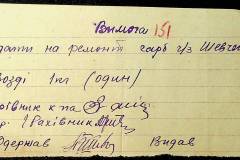 Вимога 151
дати на ремонт гарб г/з Шевчен
возді 1 кг (один)
рівник к-па
гр. Рахівник
Одержав Видав